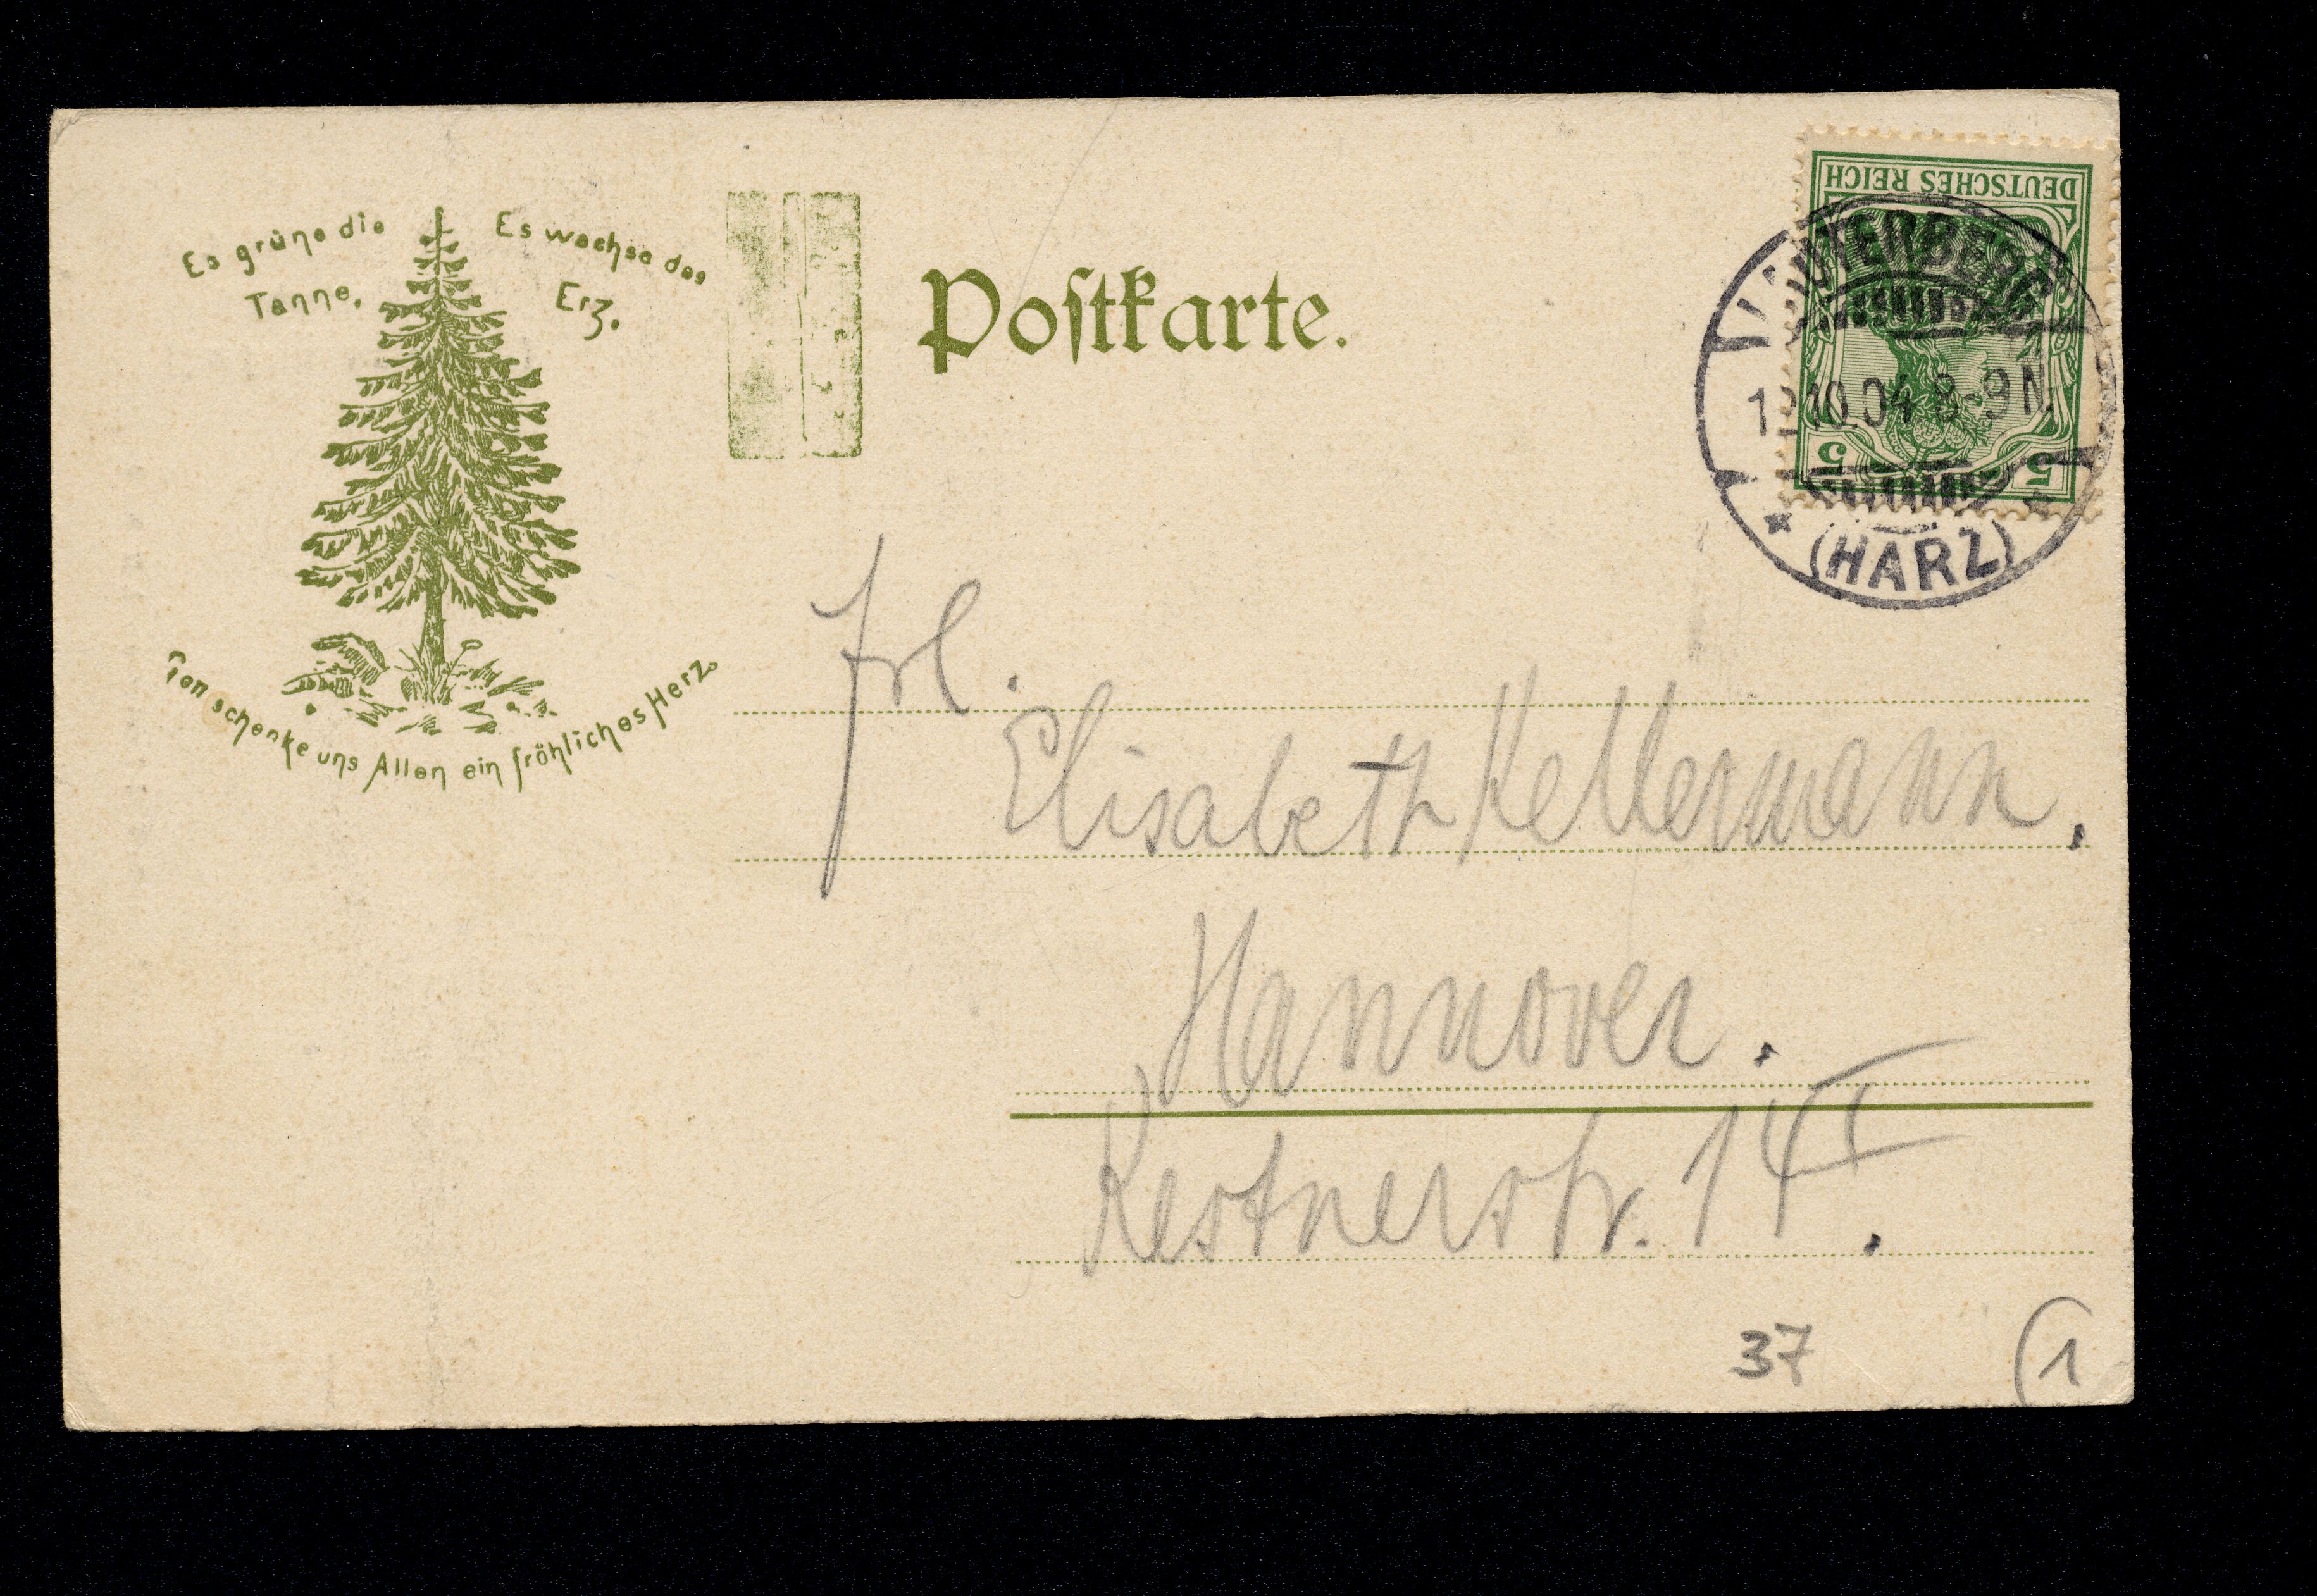 Es grüne die
Tanne,
Es wachse das
Erz,
Gott schenke uns Allen ein fröhliches Herz.
Postkarte.
DEUTSCHES REICH
5 5
LAUTERBERG
10.04 8-9 N.
* (HARZ) *
Frl.
Elisabeth Kellermann.
Hannover.
Kestnerstr. 14 I.
37
1